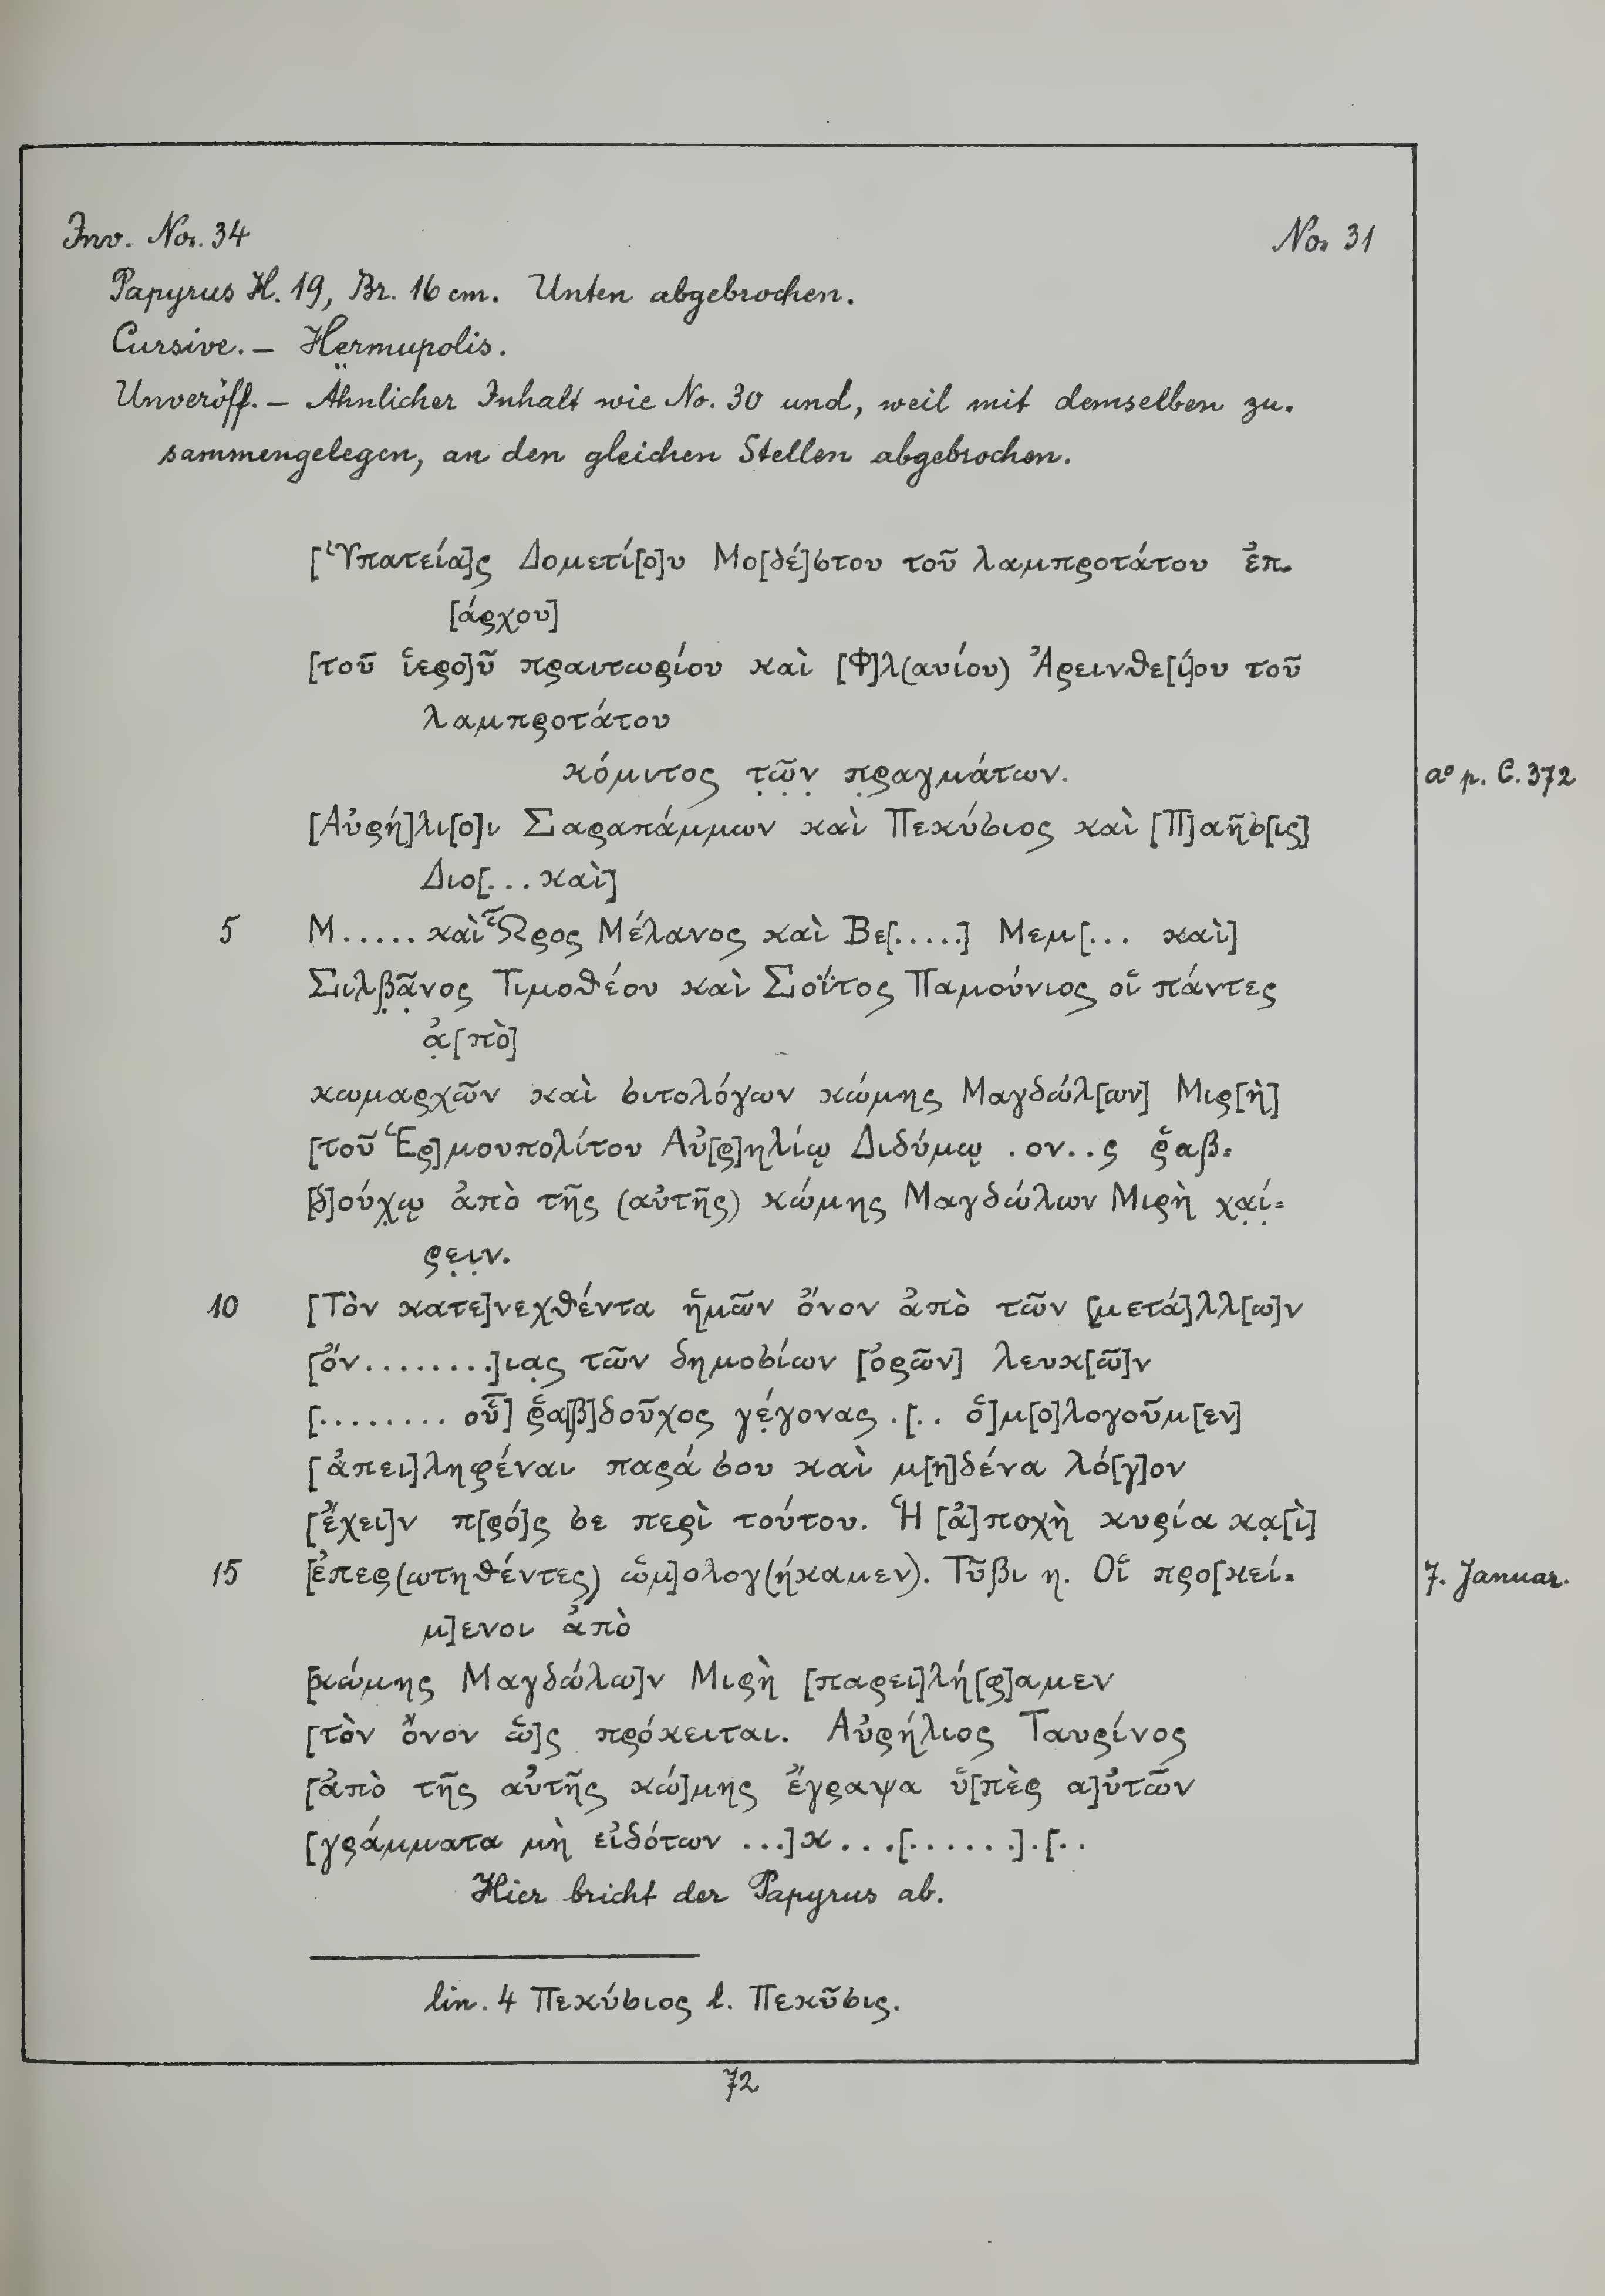 Inv. No. 34
No. 31
Papyrus H. 19, Br. 16 cm. Unten abgebrochen.
Cursive. – Hermupolis.
Unveröff. – Ähnlicher Inhalt wie No. 30 und, weil mit demselben zu-
sammengelegen, an den gleichen Stellen abgebrochen.
[Ὑπατεία]ς Δομετί[ο]υ Μο[δέ]στου τοῦ λαμπροτάτου ἐπ-
[άρχου]
[τοῦ ἱερο]ῦ πραιτωρίου καὶ [Φ]λ(αυίου) Ἀρεινθε[ί]ου τοῦ
λαμπροτάτου
κόμιτος τ̣ῶ̣ν̣ π̣ραγμάτων. a⁰ p. C. 372
[Αὐρή]λι[ο]ι Σαραπάμμων καὶ Πεκύσιος καὶ [Π]αῆσ[ις]
Διο[... καὶ]
5 Μ..... καὶ Ὧρος Μέλανος καὶ Βε[.....] Μεμ[... καὶ]
Σιλβ̣ᾶ̣νος Τιμοθέου καὶ Σοΐτος Παμούνιος οἱ πάντες
ἀ̣[πὸ]
κωμαρχῶν καὶ σιτολόγων κώμης Μαγδώλ[ων] Μιρ[ὴ]
[τοῦ Ἑρ]μουπολίτου Αὐ[ρ]ηλίῳ Διδύμῳ .ον..ς ῥαβ-
[δ]ούχ̣ῳ ἀπὸ τῆς (αὐτῆς) κώμης Μαγδώλων Μιρὴ χα̣ί̣-
ρε̣ι̣ν.
10 [Τὸν κατε]νεχθέντα ἡμῶν ὄνον ἀπὸ τῶν [μετά]λλ[ω]ν
[ὅν........]ια̣ς τῶν δημοσίων [ὀρῶν] λευκ[ῶ]ν
[........ οὗ] ῥα[β]δοῦχος γέ̣γονας .[.. ὁ]μ[ο]λογοῦμ[εν]
[ἀπει]ληφέναι παρά σου καὶ μ[η]δένα λό[γ]ον
[ἔχει]ν π[ρό]ς σε περὶ τούτου. Ἡ [ἀ]ποχὴ κυρία κα̣[ὶ]
15 [ἐπερ(ωτηθέντες) ὡμ]ολογ(ήκαμεν). Τῦβι η. Οἱ προ[κεί- 7. Januar.
μ]ενοι ἀπὸ
[κώμης Μαγδώλω]ν Μιρὴ [παρει]λή[φ]αμεν
[τὸν ὄνον ὡ]ς πρόκειται. Αὐρήλιος Ταυρίνος
[ἀπὸ τῆς αὐτῆς κώ]μης ἔγραψα ὑ[πὲρ α]ὐτῶν
[γράμματα μὴ εἰδότων ...]κ...[......].[..
Hier bricht der Papyrus ab.
lin. 4 Πεκύσιος l. Πεκῦσις.
72